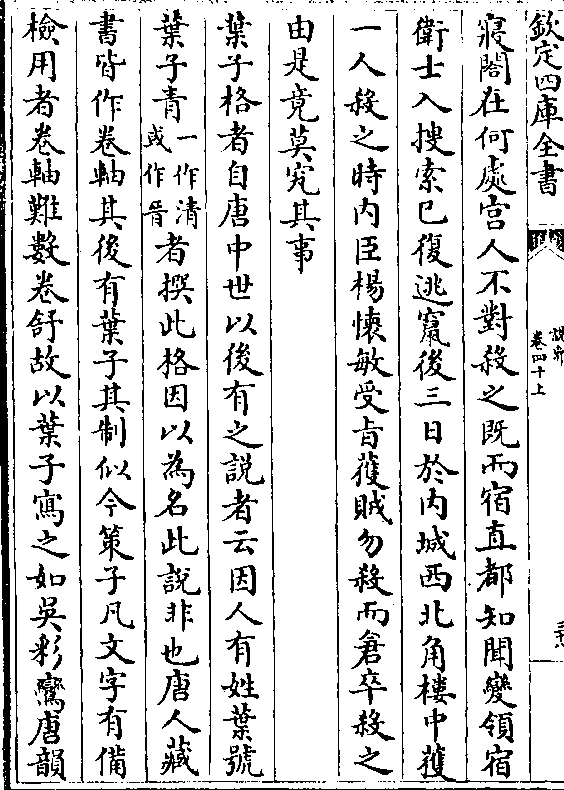 欽定四庫全書
說郛
卷四十上
寢閣在何處宫人不對殺之既而宿直都知聞變領宿
衛士入搜索已復逃竄後三日於内城西北角樓中獲
一人殺之時内臣楊懐敏受㫖獲賊勿殺而倉卒殺之
由是竟莫究其事
葉子格者自唐中世以後有之説者云因人有姓葉號
葉子青一作清或作晉者撰此格因以為名此說非也唐人藏
書皆作卷軸其後有葉子其制似今策子凡文字有備
檢用者卷軸難數卷舒故以葉子寫之如吳彩鸞唐韻